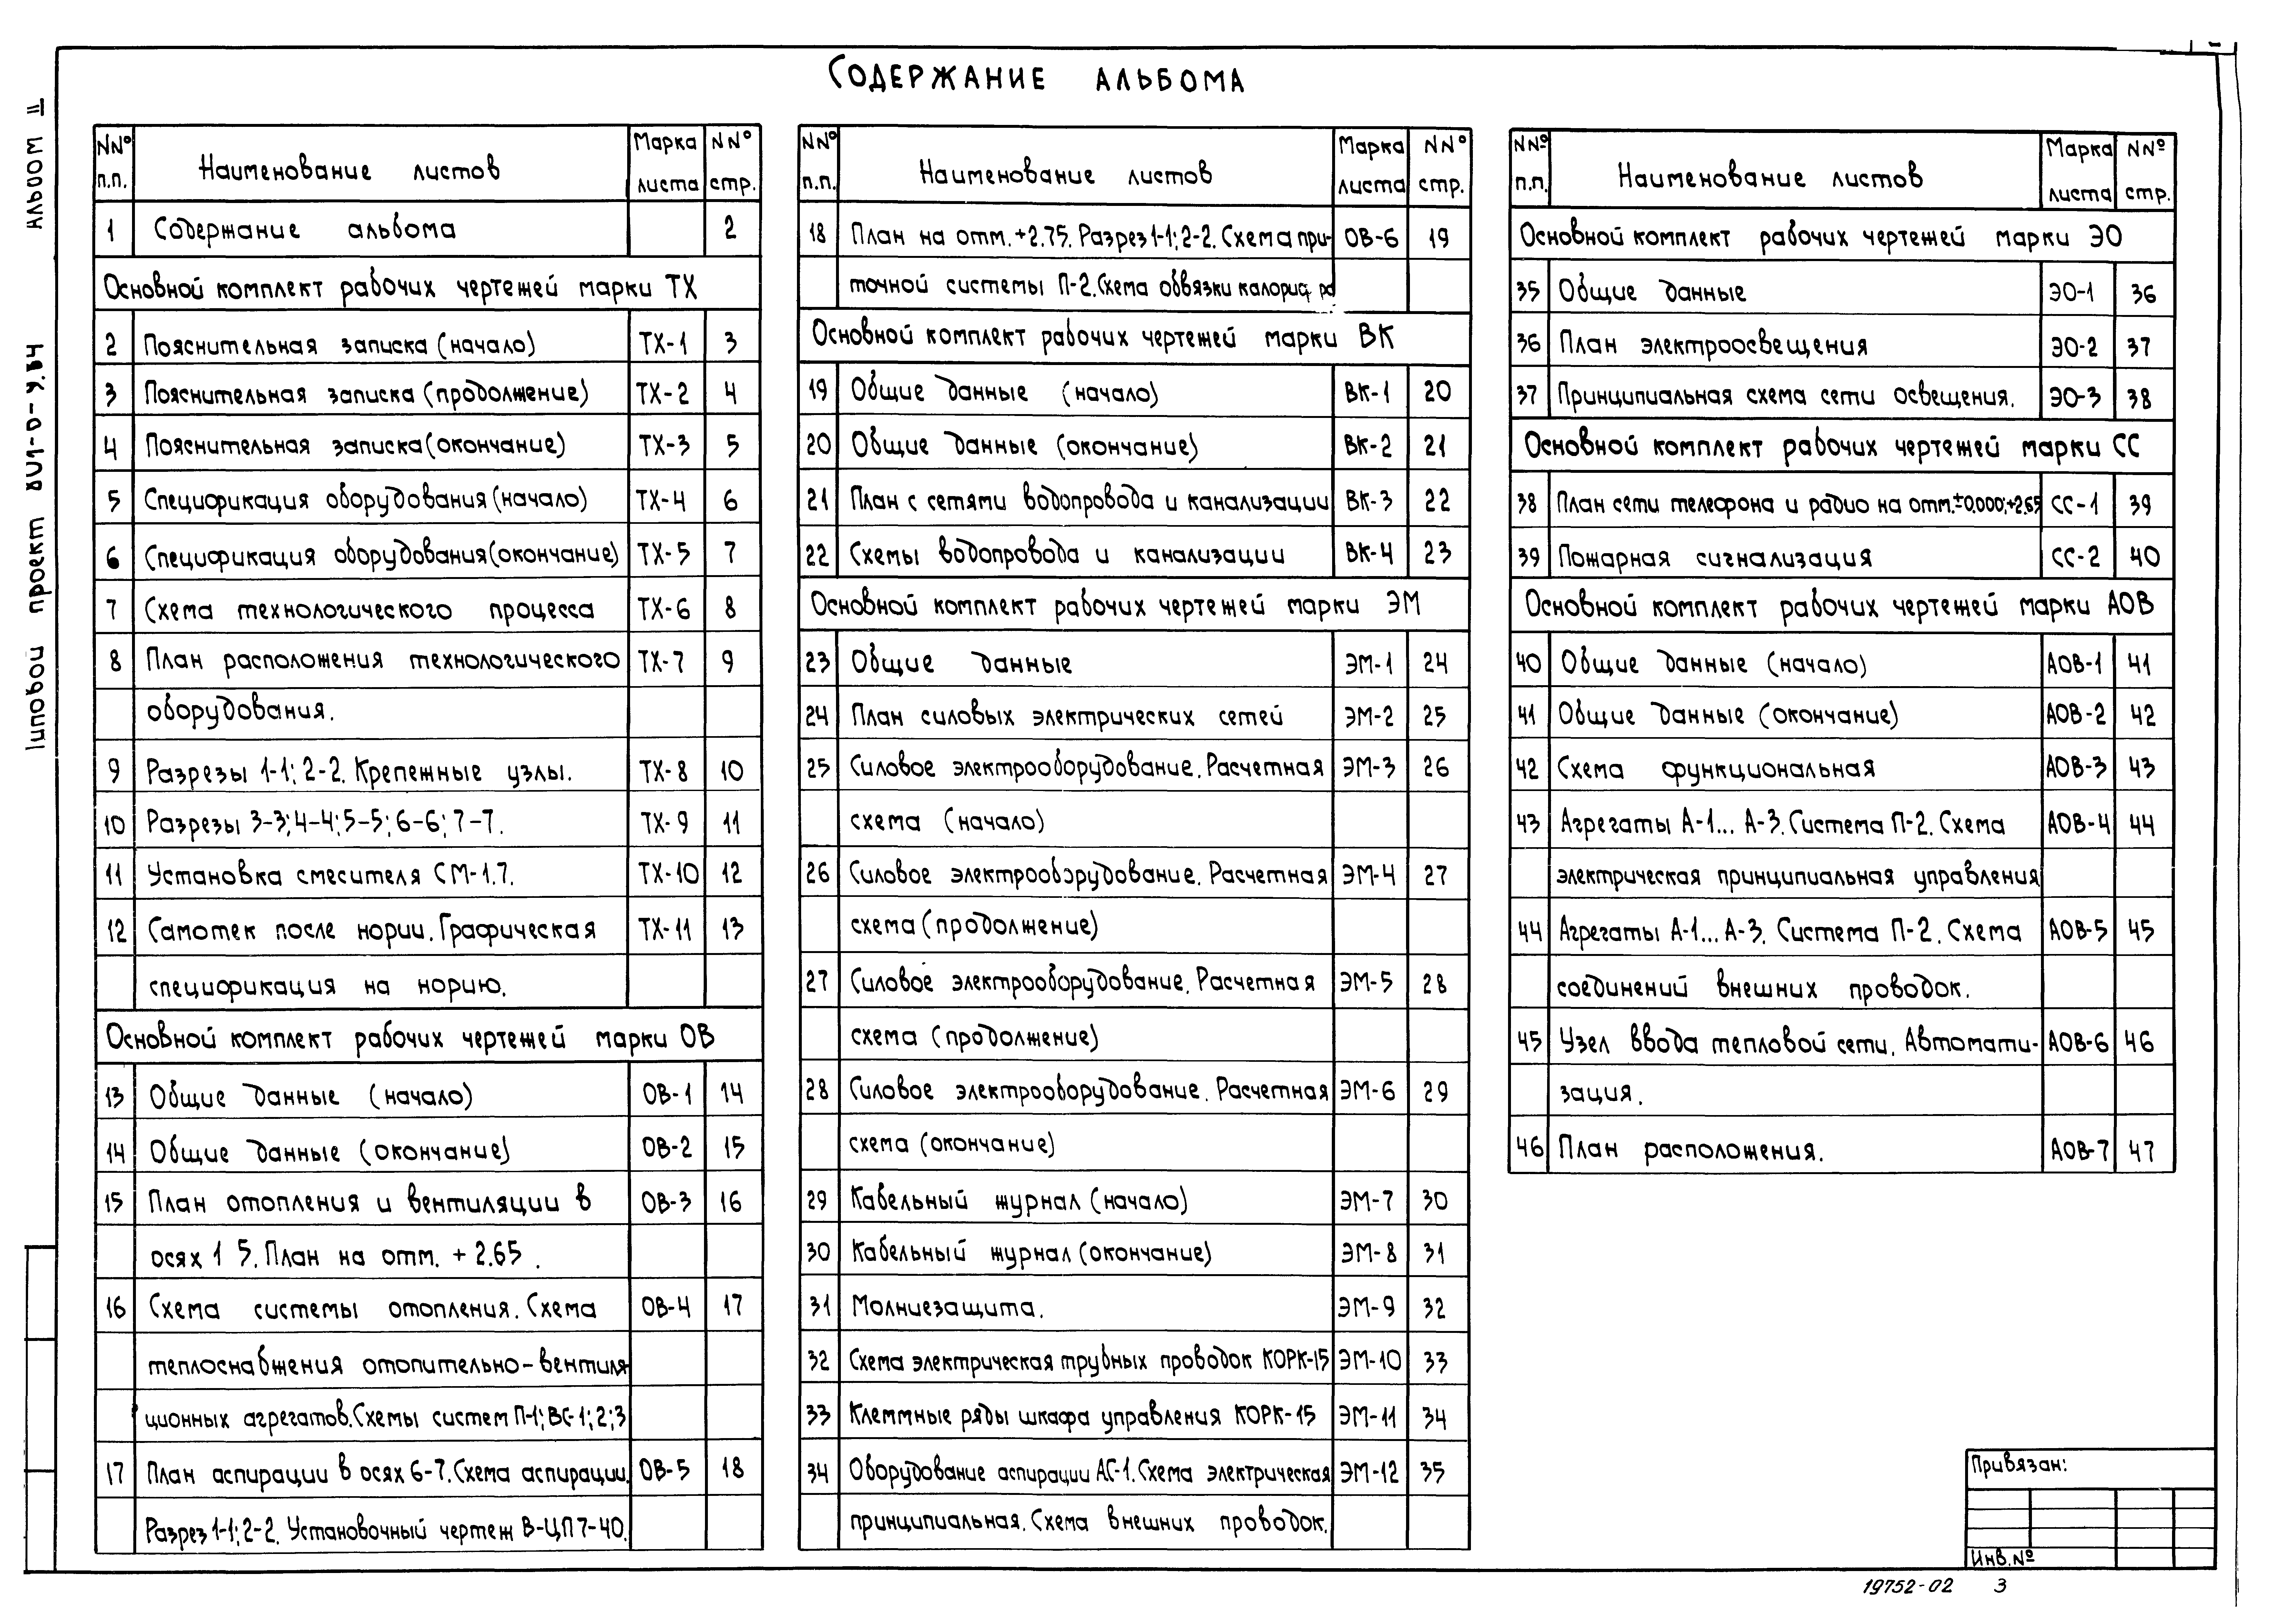 Содержание альбома
Альбом II
Типовой проект 801-0-7.84
NNº п.п. Наименование листов Марка листа NNº стр.
1 Содержание альбома 2
Основной комплект рабочих чертежей марки ТХ
2 Пояснительная записка (начало) ТХ-1 3
3 Пояснительная записка (продолжение) ТХ-2 4
4 Пояснительная записка (окончание) ТХ-3 5
5 Спецификация оборудования (начало) ТХ-4 6
6 Спецификация оборудования (окончание) ТХ-5 7
7 Схема технологического процесса ТХ-6 8
8 План расположения технологического ТХ-7 9
оборудования.
9 Разрезы 1-1; 2-2. Крепежные узлы. ТХ-8 10
10 Разрезы 3-3; 4-4; 5-5; 6-6; 7-7. ТХ-9 11
11 Установка смесителя СМ-1.7. ТХ-10 12
12 Самотек после нории. Графическая ТХ-11 13
спецификация на норию.
Основной комплект рабочих чертежей марки ОВ
13 Общие данные (начало) ОВ-1 14
14 Общие данные (окончание) ОВ-2 15
15 План отопления и вентиляции в ОВ-3 16
осях 1 5. План на отм. + 2.65 .
16 Схема системы отопления. Схема ОВ-4 17
теплоснабжения отопительно-вентиля-
ционных агрегатов. Схемы систем П-1; ВС-1; 2; 3
17 План аспирации в осях 6-7. Схема аспирации. ОВ-5 18
Разрез 1-1; 2-2. Установочный чертеж В-ЦП7-40.
NNº п.п. Наименование листов Марка листа NNº стр.
18 План на отм. +2.75. Разрез 1-1; 2-2. Схема при- ОВ-6 19
точной системы П-2. Схема обвязки калориф. ра
Основной комплект рабочих чертежей марки ВК
19 Общие данные (начало) ВК-1 20
20 Общие данные (окончание) ВК-2 21
21 План с сетями водопровода и канализации ВК-3 22
22 Схемы водопровода и канализации ВК-4 23
Основной комплект рабочих чертежей марки ЭМ
23 Общие данные ЭМ-1 24
24 План силовых электрических сетей ЭМ-2 25
25 Силовое электрооборудование. Расчетная ЭМ-3 26
схема (начало)
26 Силовое электрооборудование. Расчетная ЭМ-4 27
схема (продолжение)
27 Силовое электрооборудование. Расчетная ЭМ-5 28
схема (продолжение)
28 Силовое электрооборудование. Расчетная ЭМ-6 29
схема (окончание)
29 Кабельный журнал (начало) ЭМ-7 30
30 Кабельный журнал (окончание) ЭМ-8 31
31 Молниезащита. ЭМ-9 32
32 Схема электрическая трубных проводок КОРК-15 ЭМ-10 33
33 Клеммные ряды шкафа управления КОРК-15 ЭМ-11 34
34 Оборудование аспирации АС-1. Схема электрическая ЭМ-12 35
принципиальная. Схема внешних проводок.
NNº п.п. Наименование листов Марка листа NNº стр.
Основной комплект рабочих чертежей марки ЭО
35 Общие данные ЭО-1 36
36 План электроосвещения ЭО-2 37
37 Принципиальная схема сети освещения. ЭО-3 38
Основной комплект рабочих чертежей марки СС
38 План сети телефона и радио на отм. ±0.000; +2.65 СС-1 39
39 Пожарная сигнализация СС-2 40
Основной комплект рабочих чертежей марки АОВ
40 Общие данные (начало) АОВ-1 41
41 Общие данные (окончание) АОВ-2 42
42 Схема функциональная АОВ-3 43
43 Агрегаты А-1... А-3. Система П-2. Схема АОВ-4 44
электрическая принципиальная управления
44 Агрегаты А-1... А-3. Система П-2. Схема АОВ-5 45
соединений внешних проводок.
45 Узел ввода тепловой сети. Автомати- АОВ-6 46
зация.
46 План расположения. АОВ-7 47
Привязан:
Инв.Nº
19752-02 3